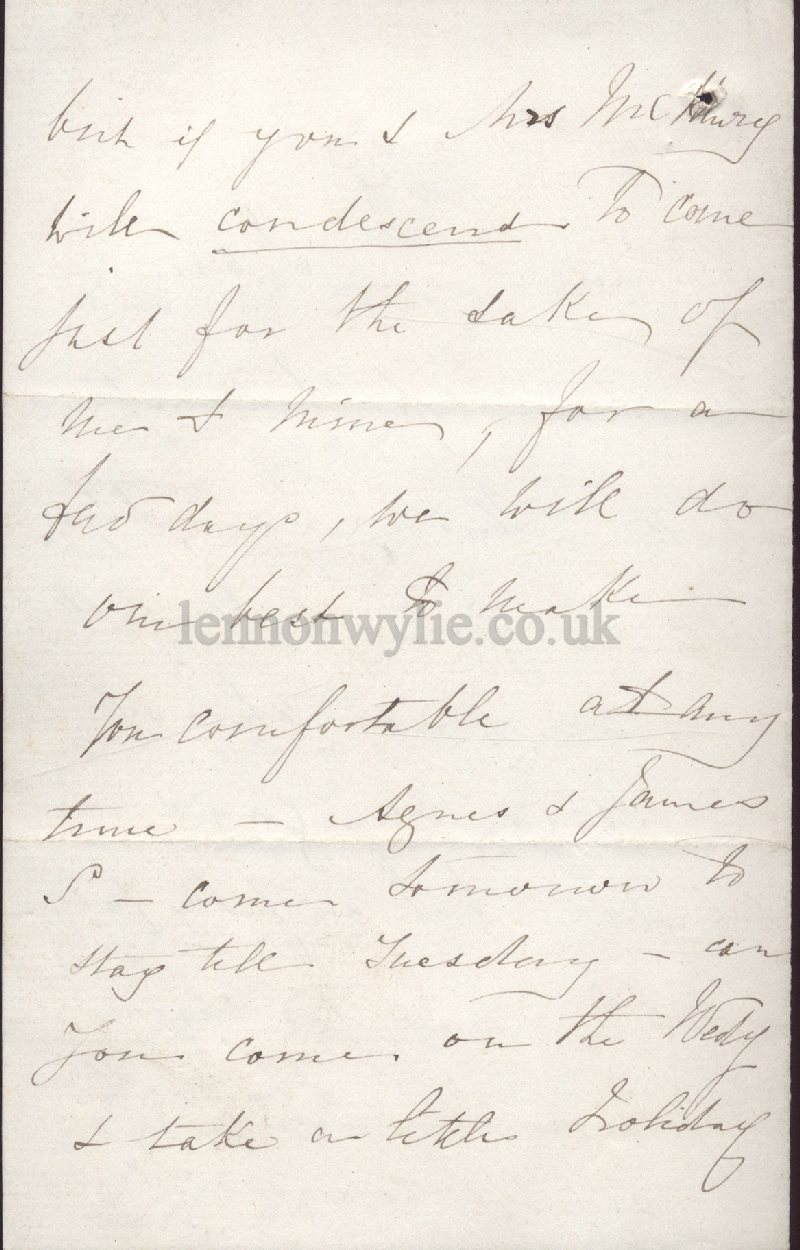 but if you & Mrs McHenry
will condescend to come
just for the sake of
me & mine, for a
few days, we will do
our best to make
lennonwylie.co.uk
you comfortable at any
time — Agnes & James
S — come tomorrow to
stay till Tuesday — can
you come on the Wedy
& take a little Holiday